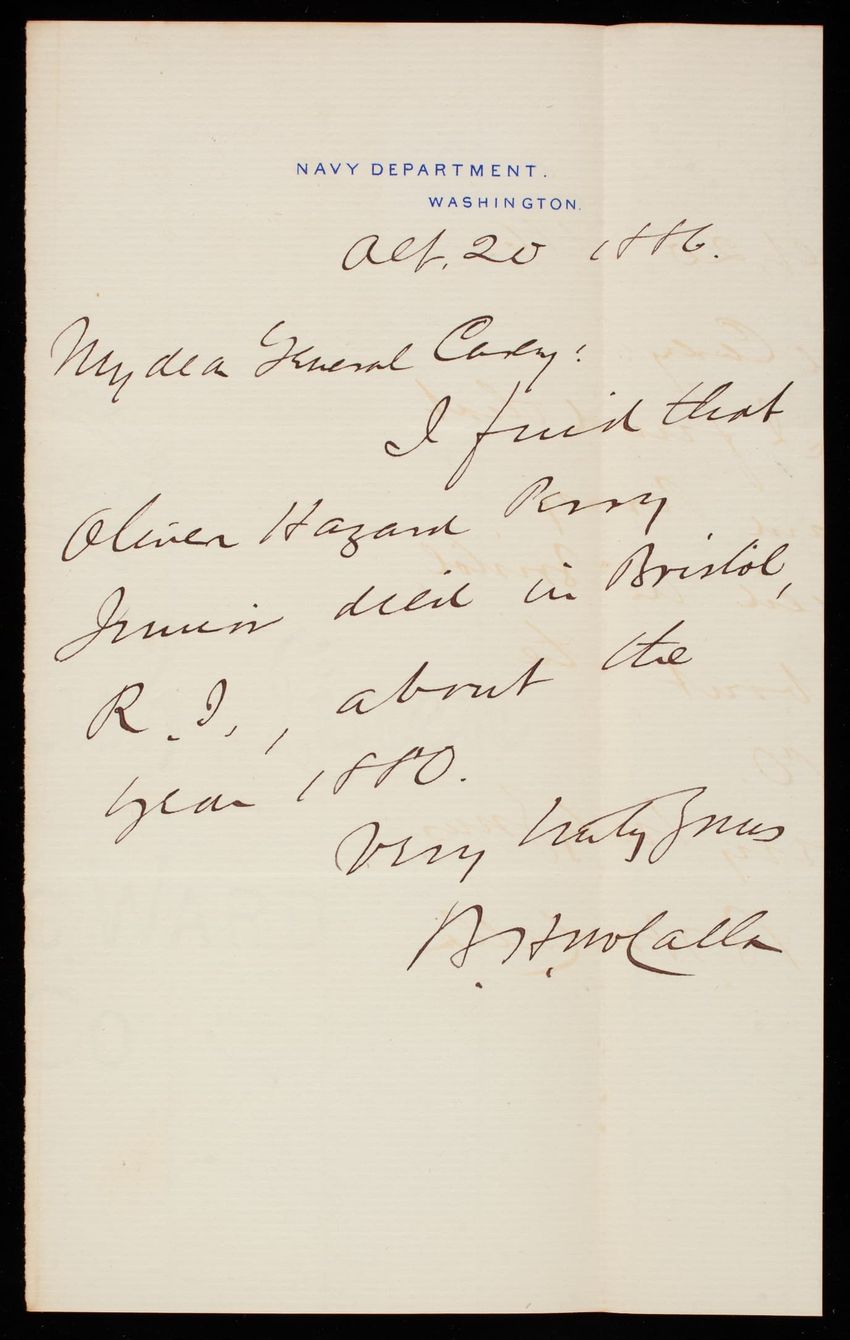 NAVY DEPARTMENT.
WASHINGTON.
Oct. 20 1886.
My dear General Casey:
I find that
Oliver Hazard Perry
Junior died in Bristol,
R. I., about the
year 1880.
Very truly Yours
B. H. McCalla